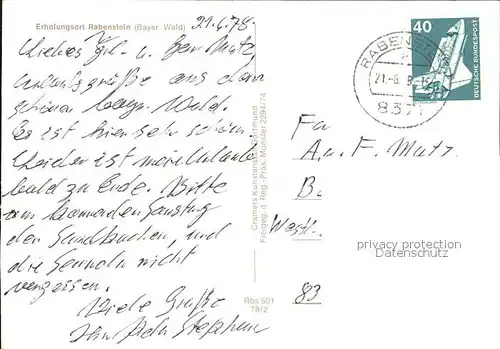 Erholungsort Rabenstein (Bayer. Wald)
21.6.78.
Liebes Frl. u. Herr Mutz
Urlaubsgrüße aus dem
schönen bayr. Wald.
Es ist hier sehr schön.
Leider ist mein Urlaub
bald zu Ende. Bitte
am kommenden Samstag
den Sandkuchen, und
die Semmeln nicht
vergessen.
Viele Grüße
Cramers Kunstanstalt Dortmund
Freigeg. d. Reg.-Präs. Münster 2294/74
Rbs 501
78/2
40
DEUTSCHE BUNDESPOST
RABENST
21.-6.
8371
Fa
A. u. F. Mutz
B.
Westf.
83
privacy protection
Datenschutz